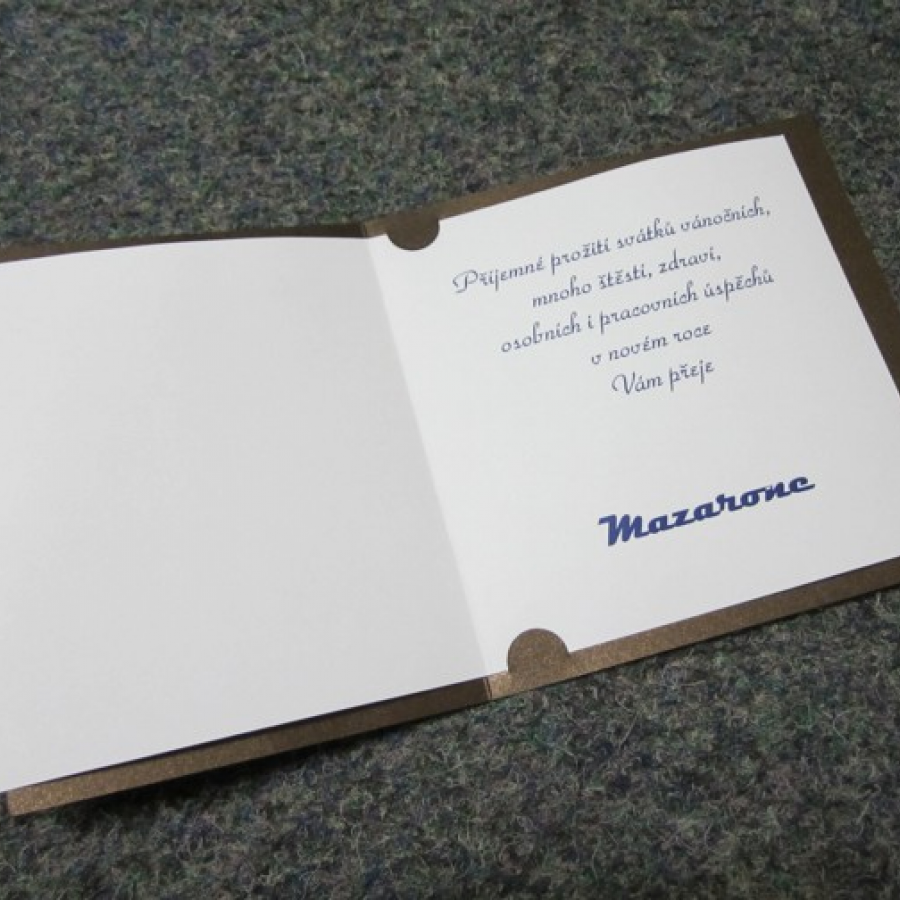 Příjemné prožití svátků vánočních,
mnoho štěstí, zdraví,
osobních i pracovních úspěchů
v novém roce
Vám přeje
Mazarone